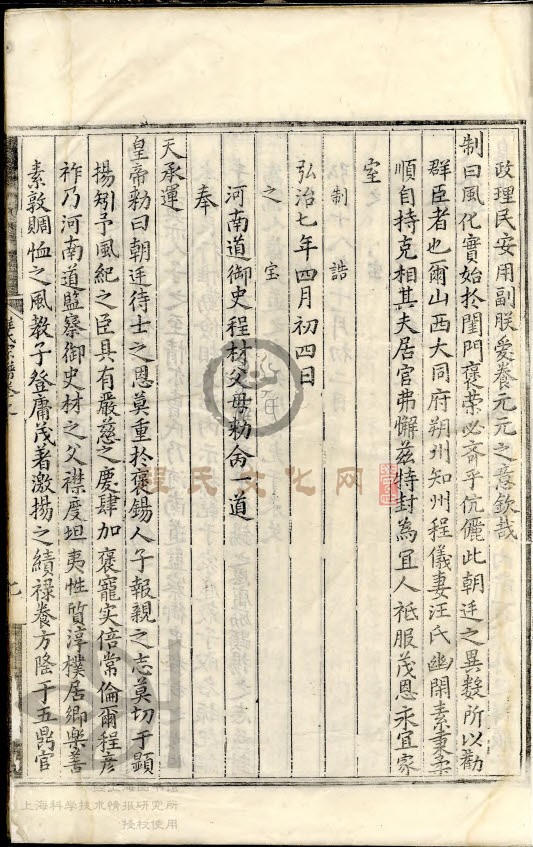 政理民安用副朕愛養元元之意欽哉
制曰風化實始於閨門褒荣必齊乎伉儷此朝廷之異数所以勸
群臣者也爾山西大同府朔州知州程儀妻汪氏幽閑素秉柔
順自持克相其夫居官弗懈兹特封為宜人祗服茂恩永宜家
室
制誥
弘治七年四月初四日
之宝
河南道御史程材父母勅命一道
奉
天承運
皇帝勅曰朝廷待士之恩莫重於褒錫人子報親之志莫切于顯
揚矧予風紀之臣具有嚴慈之慶肆加褒寵实倍常倫爾程彦
祚乃河南道監察御史材之父襟度坦夷性質淳樸居鄉樂善
素敦賙恤之風教子登庸茂著激揚之績禄養方隆于五鼎官
七
天文化网
上海科学技术情报研究所
授权使用